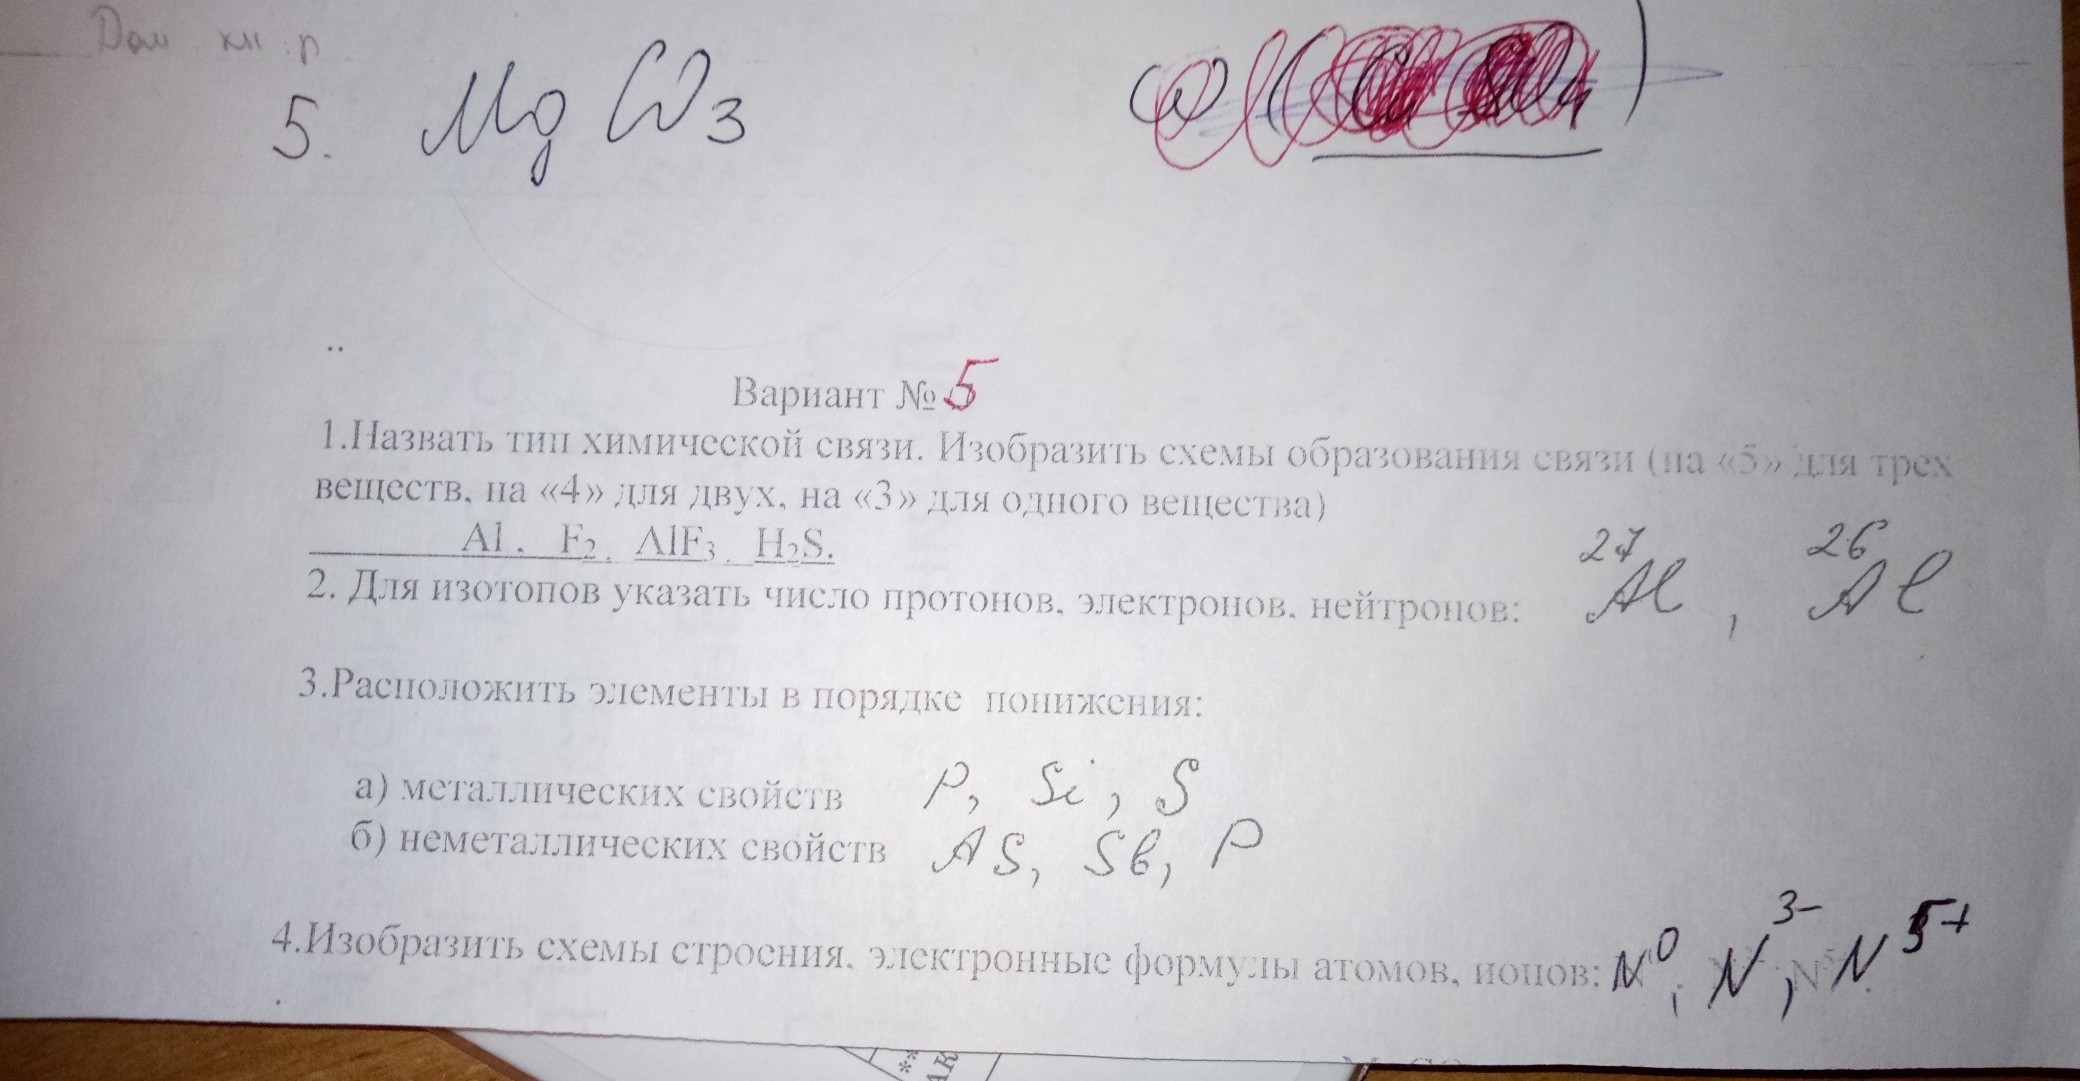 Дом
5. MgCO3
..
Вариант № 5
1.Назвать тип химической связи. Изобразить схемы образования связи (на «5» для трех
веществ, на «4» для двух, на «3» для одного вещества)
Al . F2 , AlF3 , H2S.
2. Для изотопов указать число протонов, электронов, нейтронов: 27Al , 26Al
3.Расположить элементы в порядке понижения:
а) металлических свойств P, Si, S
б) неметаллических свойств As, Sb, P
4.Изобразить схемы строения, электронные формулы атомов, ионов: N0, N3-, N5+